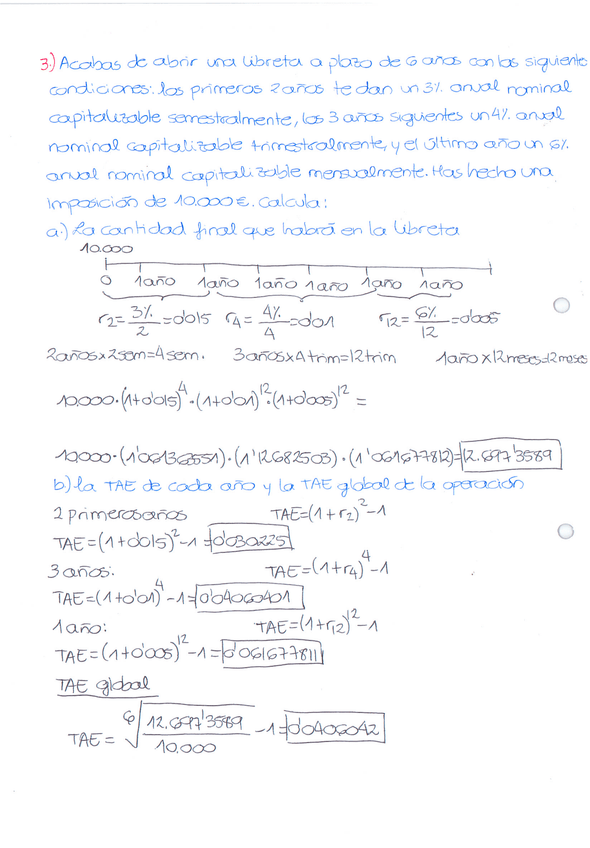 3.) Acabas de abrir una libreta a plazo de 6 años con las siguiente
condiciones: los primeros 2 años te dan un 3% anual nominal
capitalizable semestralmente, los 3 años siguientes un 4% anual
nominal capitalizable trimestralmente, y el último año un 6%
anual nominal capitalizable mensualmente. Has hecho una
imposición de 10.000€. Calcula:
a.) La cantidad final que habrá en la libreta
10.000
0 1año 1año 1año 1año 1año 1año
r2=3%/2=0'015 r4=4%/4=0'01 r12=6%/12=0'005
2años×2sem=4sem. 3años×4trim=12trim 1año×12meses=12meses
10.000·(1+0'015)^4·(1+0'01)^12·(1+0'005)^12=
10.000·(1'061363551)·(1'12682503)·(1'061677812)=12.697'3589
b) La TAE de cada año y la TAE global de la operación
2 primeros años TAE=(1+r2)^2-1
TAE=(1+0'015)^2-1=0'030225
3 años: TAE=(1+r4)^4-1
TAE=(1+0'01)^4-1=0'04060401
1 año: TAE=(1+r12)^12-1
TAE=(1+0'005)^12-1=0'061677811
TAE global
TAE=6√12.697'3589/10.000-1=0'0406042